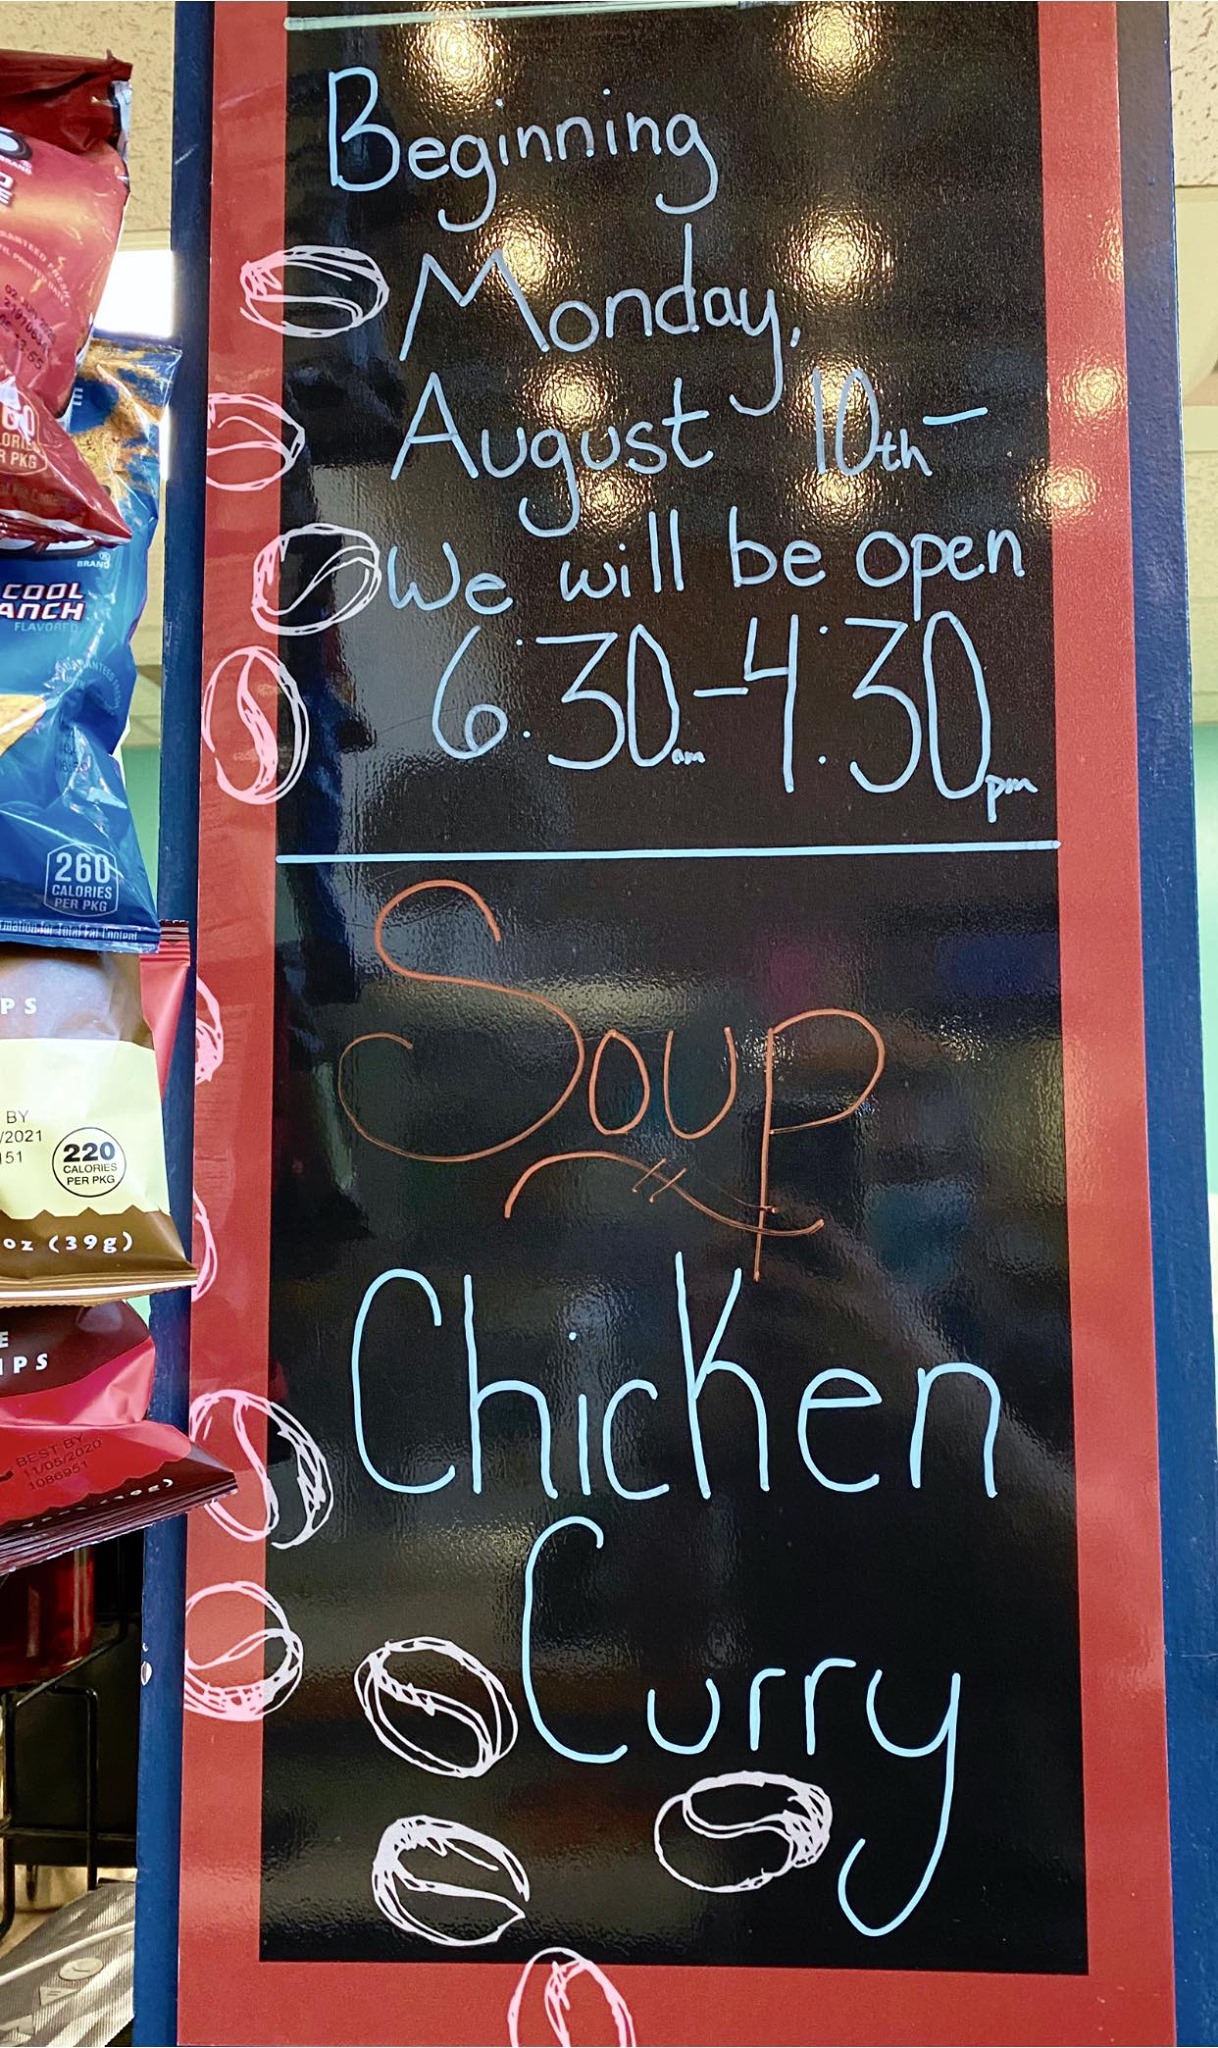 Beginning
Monday,
August 10th-
We will be open
6:30am-4:30pm
Soup
Chicken
Curry
260
CALORIES
PER PKG
COOL
BRAND
FLAVORED
PS
BY
/2021
151
220
CALORIES
PER PKG
oz (39g)
E
IPS
BEST BY
11/05/2020
1086951
R PKG